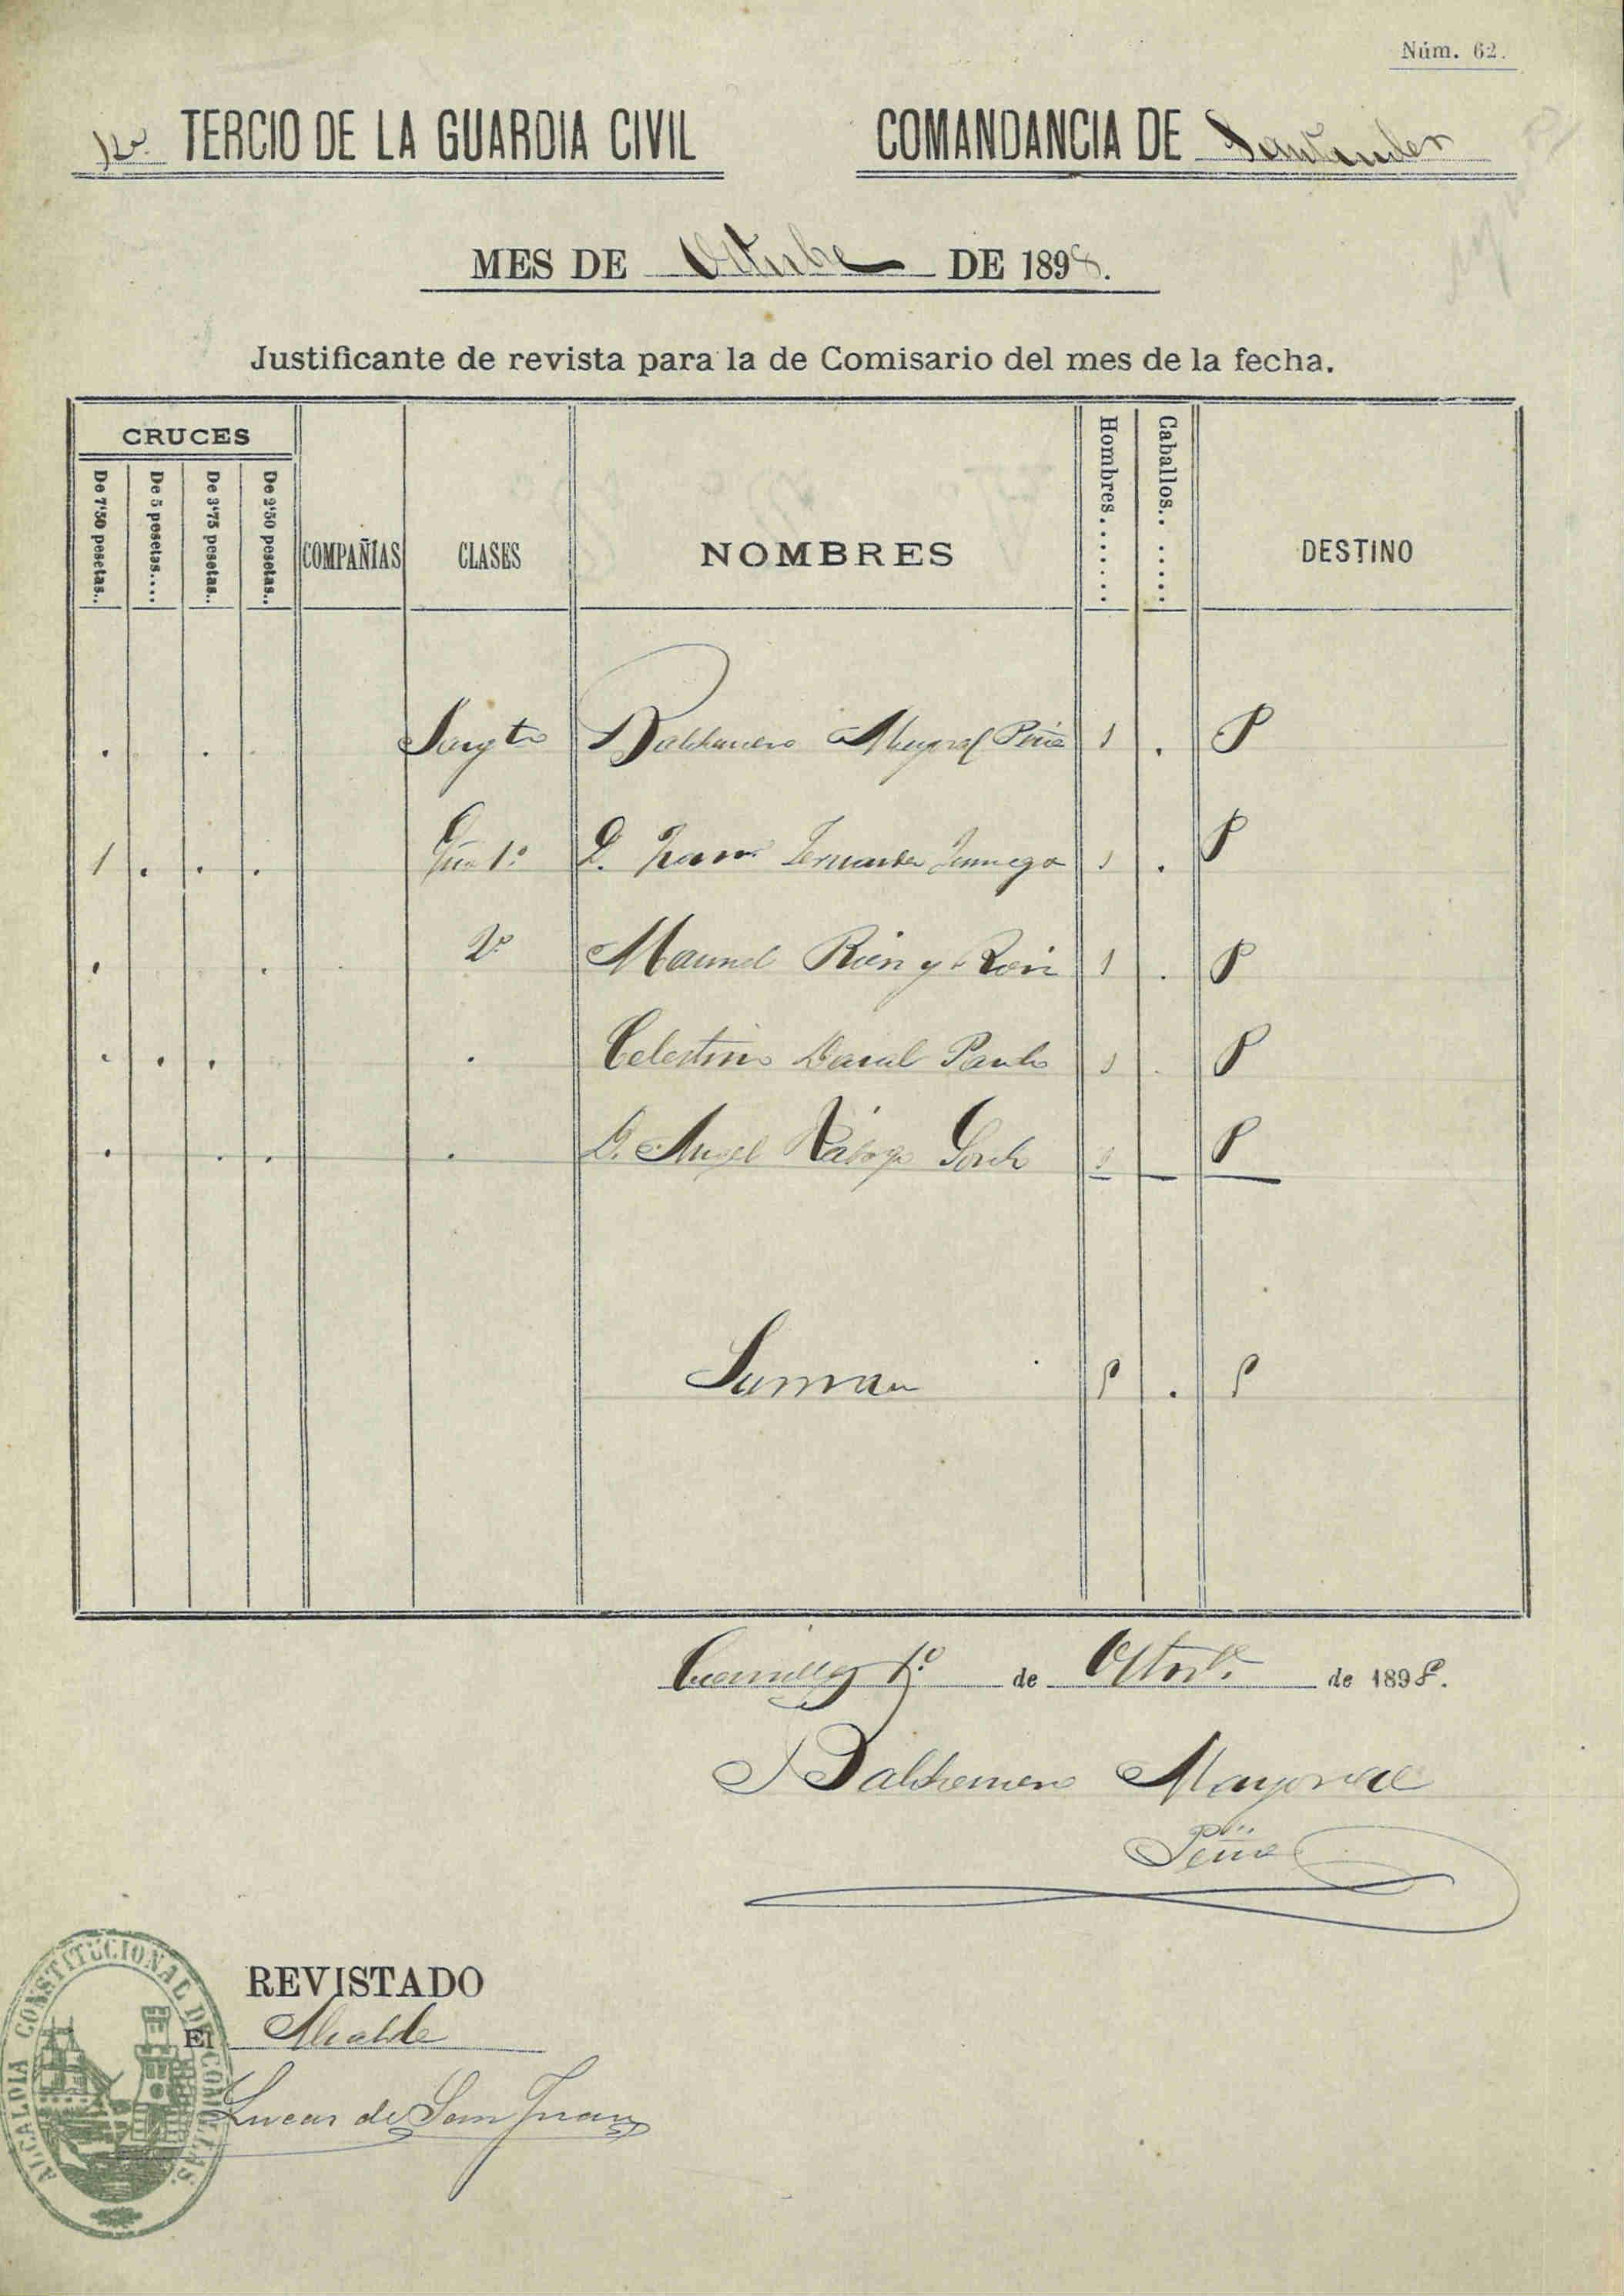 Núm. 62.
TERCIO DE LA GUARDIA CIVIL COMANDANCIA DE Santander
MES DE Octubre DE 1898.
Justificante de revista para la de Comisario del mes de la fecha.
CRUCES
De 7'50 pesetas..
De 5 pesetas....
De 3'75 pesetas..
De 2'50 pesetas..
COMPAÑÍAS
CLASES
NOMBRES
Hombres.......
Caballos.. .....
DESTINO
Sargto Baldomero Mayoral Peña 1 . P
1 . . . 1º D. 1 . P
2º Manuel 1 . P
Celestino 1 . P
D. Angel 1 P
Suman 5 . 5
Comillas 1º de Octbe. de 1898.
Baldomero Mayoral
Peña
REVISTADO
El Alcalde
Lucas de San Juan
ALCALDIA CONSTITUCIONAL DE COMILLAS.